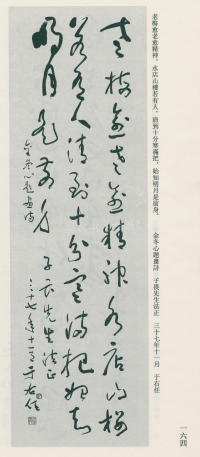 老梅愈老愈精神，水店山樓若有人，清到十分寒滿把，始知明月是前身。　金冬心題畫詩　子良先生法正　三十七年十一月　于右任
老梅愈老愈精神水店山樓
若有人清到十分寒滿把始知
明月是前身
金冬心題畫詩
子良先生法正
三十七年十一月于右任
一六四